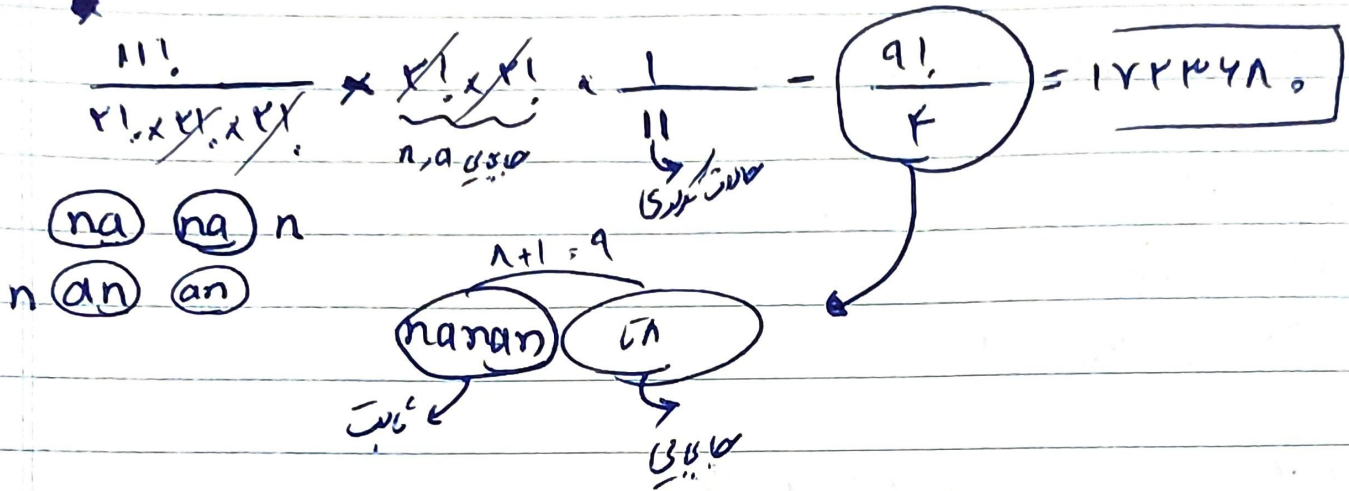 ۱۱! / ۲! × ۲! × ۲! × ۲! × ۲! × ۱ / ۱۱ - ۹! / ۴ = ۱۷۲۳۶۸۰
n,a جابجایی
حالات تکراری
na na n
۸+۱=۹
n an an
nanan ۸ تا
ثابت
جابجایی